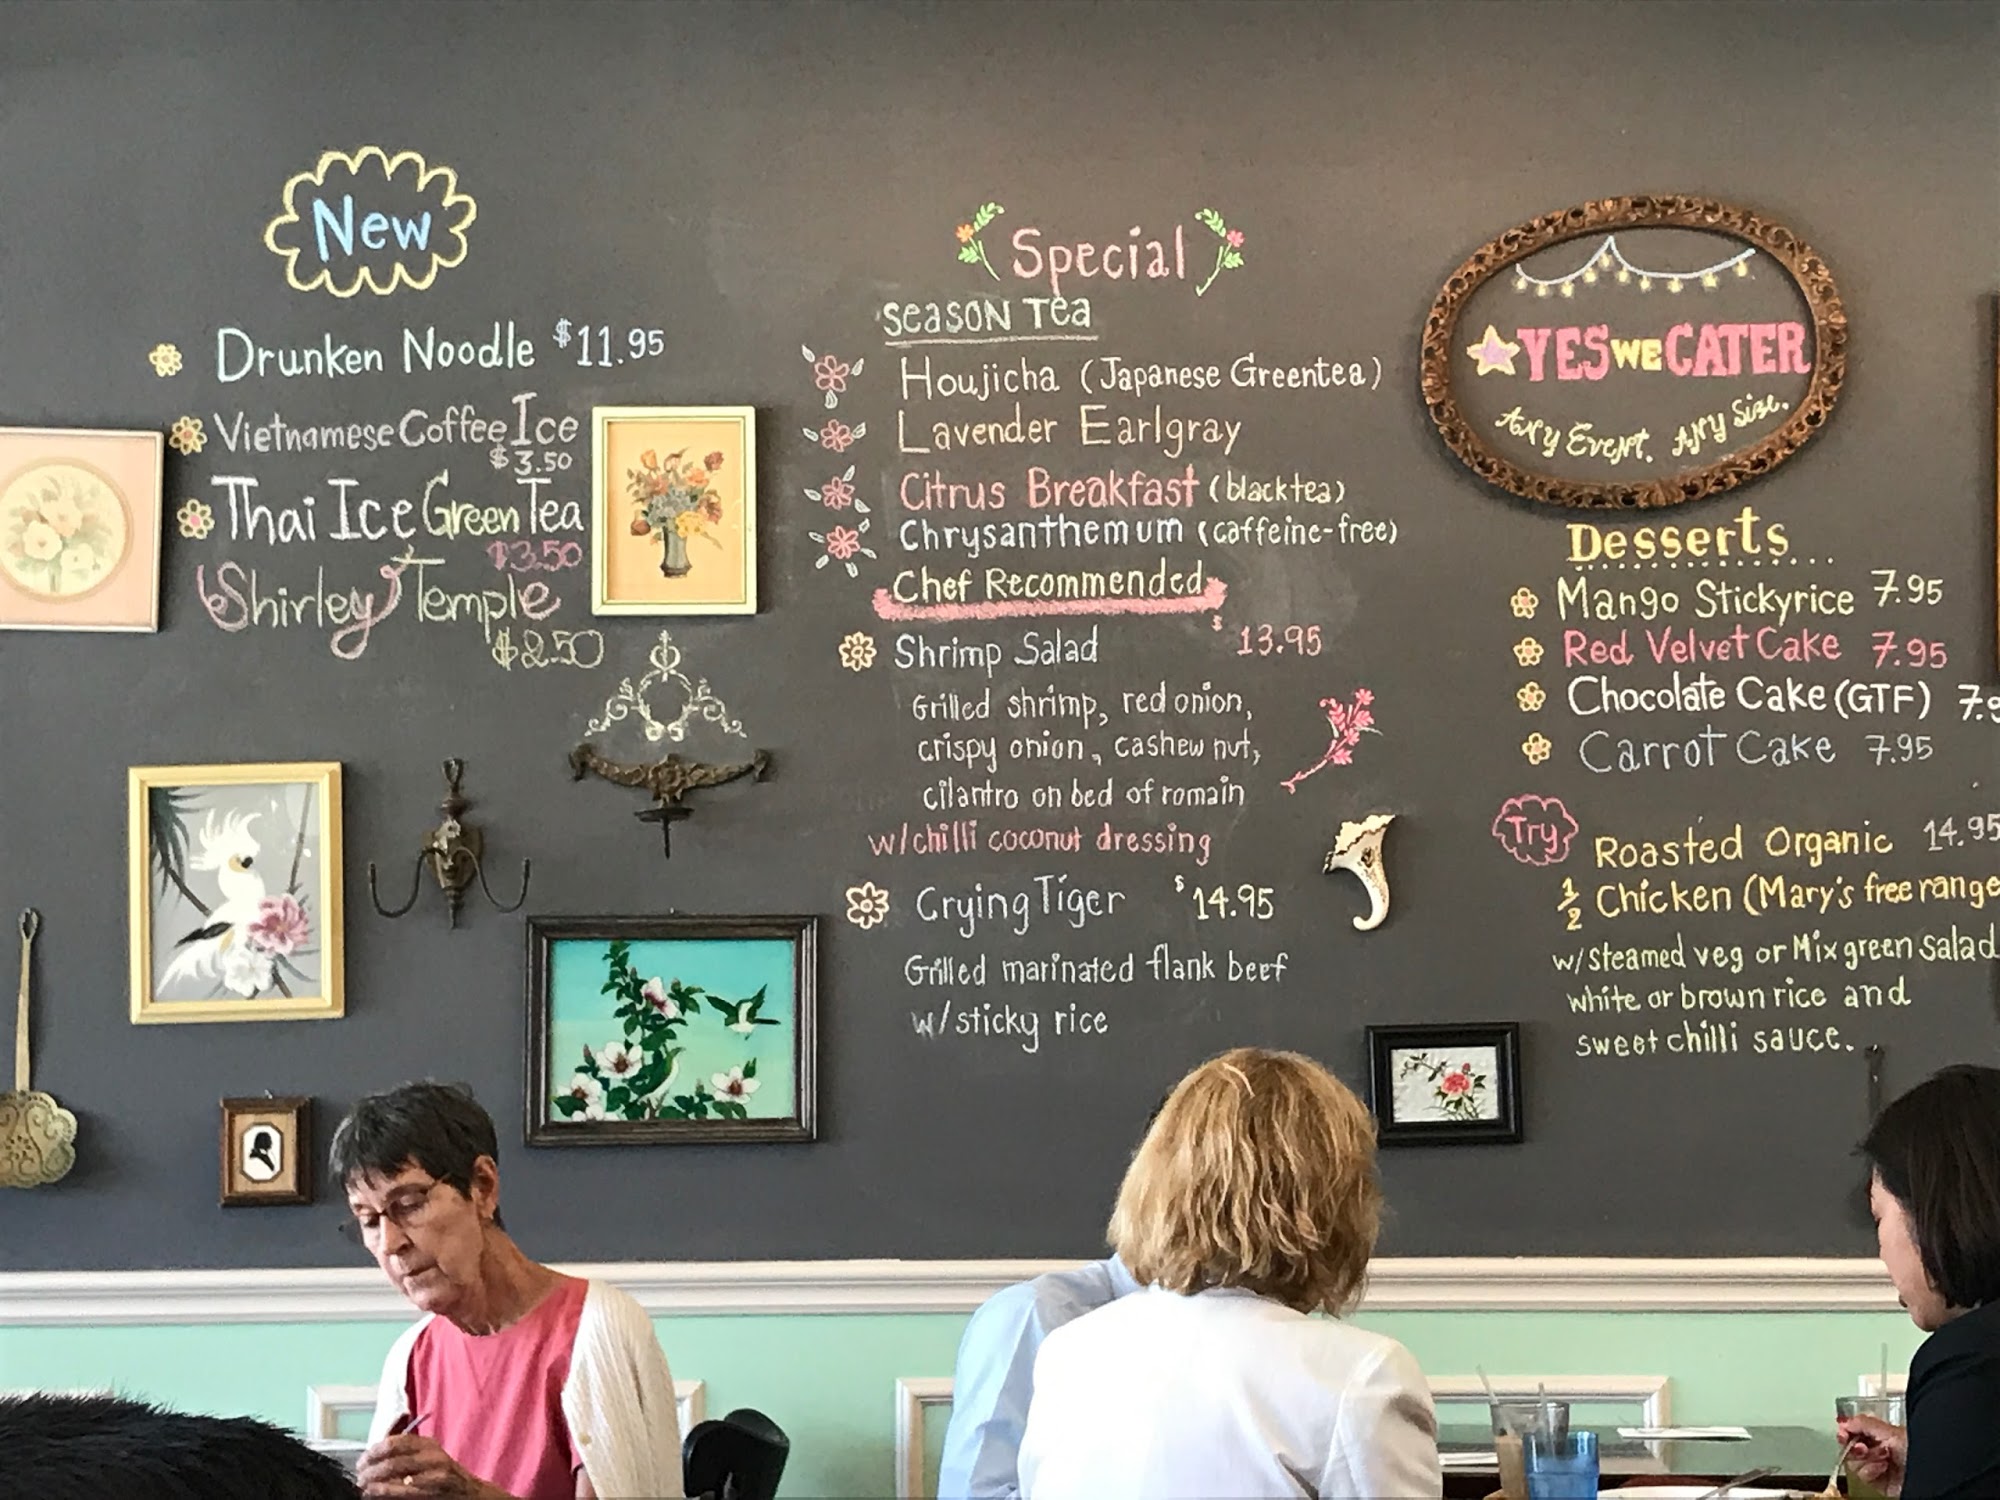 New
Drunken Noodle $11.95
Vietnamese Coffee Ice
$3.50
Thai Ice Green Tea
$3.50
Shirley Temple
$2.50
Special
Season Tea
Houjicha (Japanese Greentea)
Lavender Earlgray
Citrus Breakfast (blacktea)
Chrysanthemum (caffeine-free)
Chef Recommended
Shrimp Salad $13.95
Grilled shrimp, red onion,
crispy onion, cashew nut,
cilantro on bed of romain
w/chilli coconut dressing
Crying Tiger $14.95
Grilled marinated flank beef
w/sticky rice
YES WE CATER
Any Event. Any Size.
Desserts...
Mango Stickyrice 7.95
Red Velvet Cake 7.95
Chocolate Cake (GTF) 7.9
Carrot Cake 7.95
Try
Roasted Organic 14.95
1/2 Chicken (Mary's free range
w/steamed veg or Mix green salad
white or brown rice and
sweet chilli sauce.